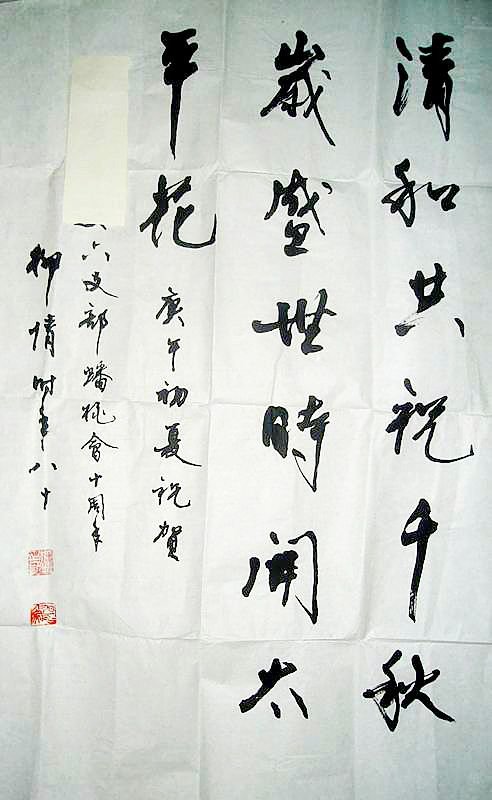 清和共祝千秋
歲盛世時開太
平花
庚午初夏祝賀
六支部蟠桃會十周年
柳倩時年八十